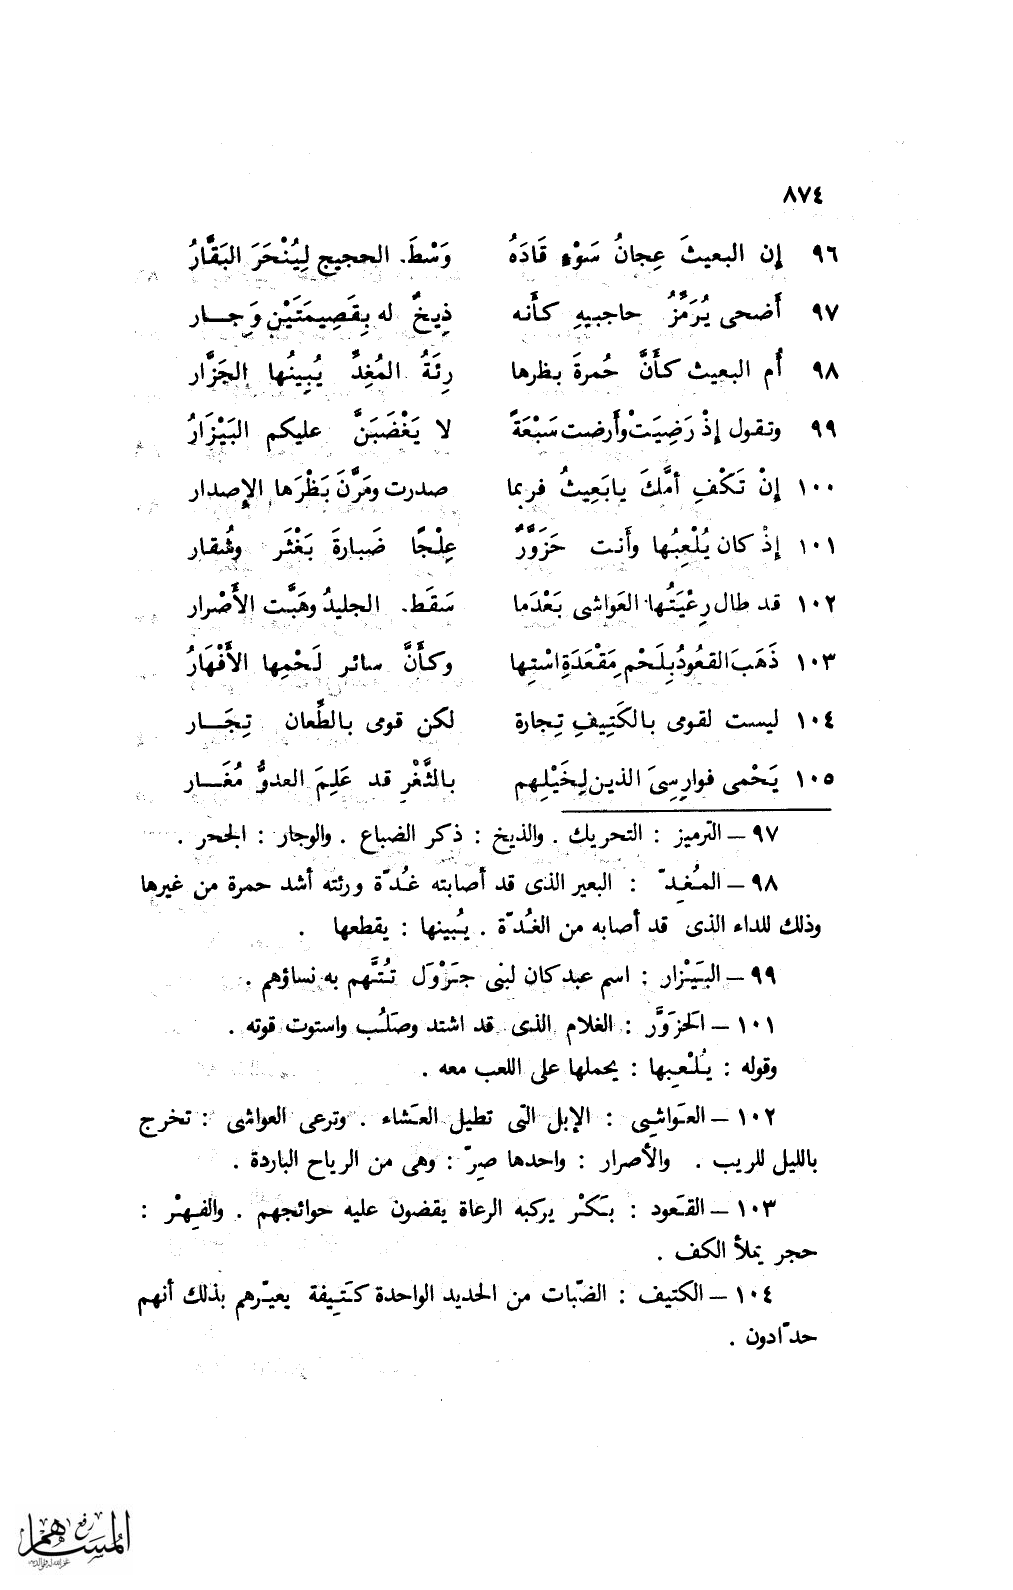 ٨٧٤
٩٦ إن البعيثَ عِجانُ سَوْءٍ قَادَهُ وَسْطَ الحجيج لِيُنْحَرَ البَقَّارُ
٩٧ أَضحى يُرَمَّزُ حاجبيهِ كأَنه ذِيخٌ له بِقَصِيمَتَيْنِ وَجار
٩٨ أُم البعيث كأَنَّ حُمرةَ بظرها رِئَةُ المُغِدِّ يُبِينُها الجَزَّار
٩٩ وتقول إذْ رَضِيَتْ وأَرضت سَبْعَةً لا يَغْضَبَنَّ عليكم البَيْزَارُ
١٠٠ إنْ تَكْفِ أمَّكَ يابَعِيثُ فربما صدرت ومَرَّنَ بَظْرَها الإصدار
١٠١ إذْ كان يُلْعِبُها وأَنت حَزَوَّرٌ عِلْجًا ضَبارةَ بَغْثَر وشُقار
١٠٢ قد طال رِعْيَتُها العَواشى بَعْدَما سَقَط الجليدُ وهَبَّت الأَصْرار
١٠٣ ذَهَبَ القعُودُ بِلَحْمِ مَقْعَدَةِ اسْتِها وكأَنَّ سائر لَحْمِها الأَفْهَارُ
١٠٤ ليست لقومى بالكَتِيفِ تِجارة لكن قومى بالطِّعان تِجَار
١٠٥ يَحْمى فوارِسِىَ الذين لِخَيْلِهم بالثَّغْرِ قد عَلِمَ العدوُّ مُغَار
٩٧ – التّرميز : التحريك . والذيخ : ذكر الضباع . والوجار : الجحر .
٩٨ – المُغِدّ : البعير الذى قد أصابته غُدّة ورئته أشد حمرة من غيرها
وذلك للداء الذى قد أصابه من الغُدّة . يُبينها : يقطعها .
٩٩ – البَيْزار : اسم عبد كان لبنى جَرْوَل تُتَّهم به نساؤهم .
١٠١ – الحَزَوَّر : الغلام الذى قد اشتد وصَلُب واستوت قوته .
وقوله : يُلْعِبها : يحملها على اللعب معه .
١٠٢ – العَواشِى : الإبل التى تطيل العَشاء . وترعى العواشى : تخرج
بالليل للريب . والأصرار : واحدها صِرّ : وهى من الرياح الباردة .
١٠٣ – القَعود : بَكْر يركبه الرعاة يقضون عليه حوائجهم . والفِهْر :
حجر يملأ الكف .
١٠٤ – الكتيف : الضبّات من الحديد الواحدة كَتِيفة يعيّرهم بذلك أنهم
حدّادون .
رفع المساهم